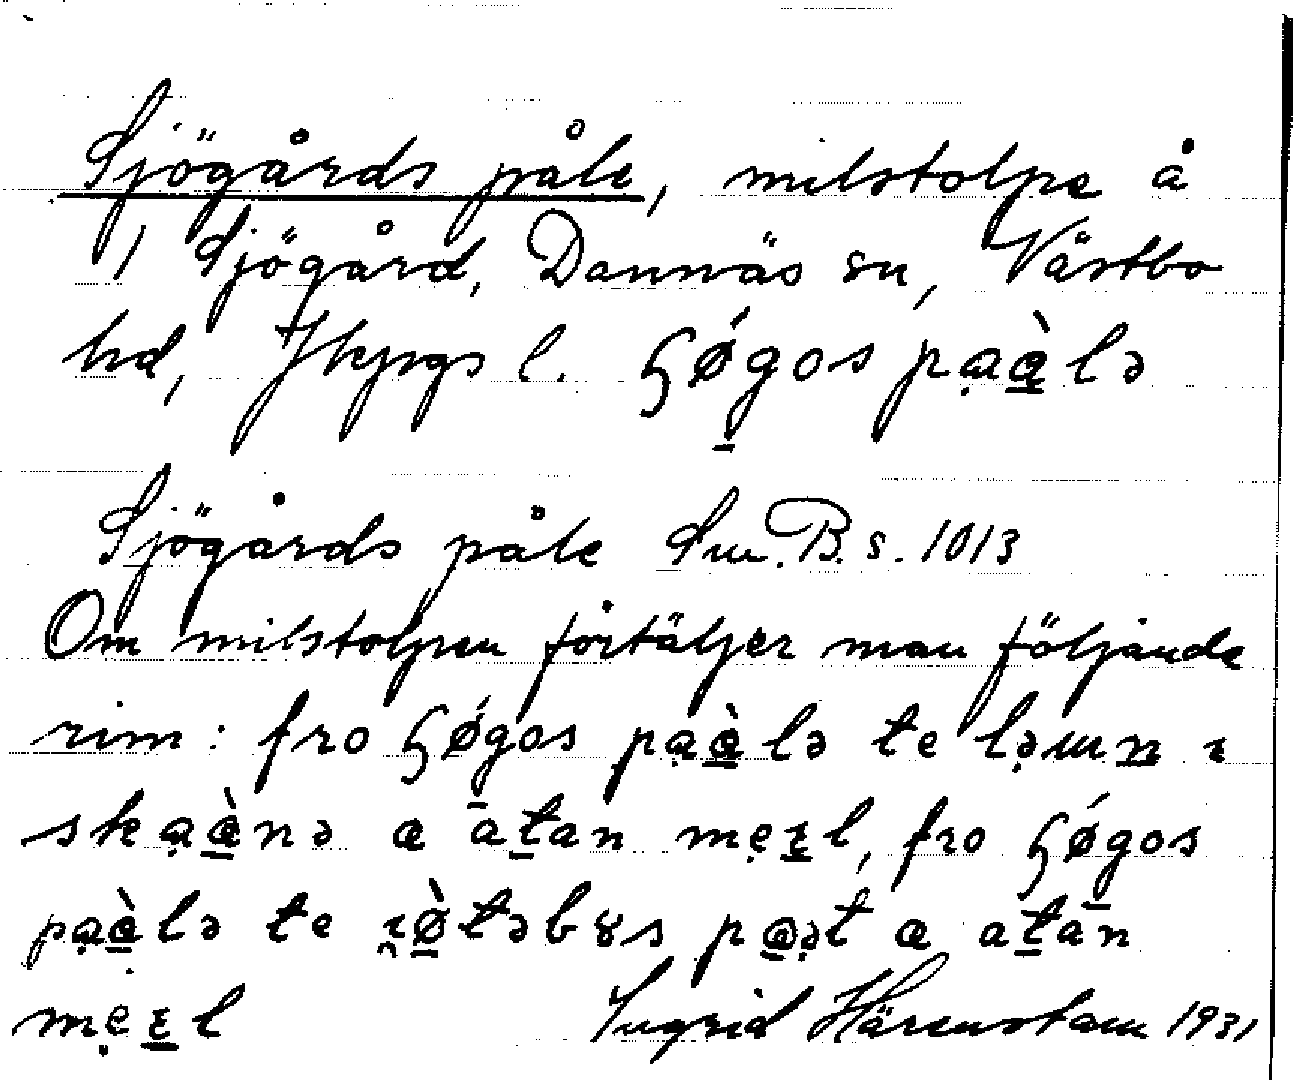 Sjögårds påle, milstolpe å
1 Sjögård, Dannäs sn, Västbo
hd, Jkpgs l. ɧǿgos pa̤à̤lə
Sjögårds påle Sm. B. s. 1013
Om milstolpen förtäljer man följande
rim: fro ɧǿgos pa̤à̤lə te
skaànə a atan meɛl, fro ɧǿgos
paàlə te pɑət a atan
meɛl Ingrid Härenstam 1931